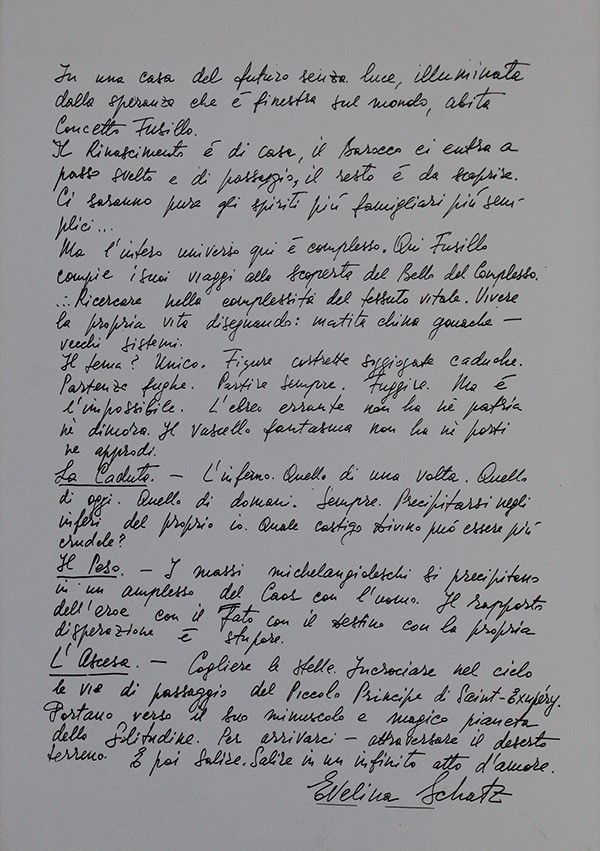 In una casa del futuro senza luce, illuminata
dalla speranza che é finestra sul mondo, abita
Concetto Fusillo.
Il Rinascimento é di casa, il Barocco ci entra a
passo svelto e di passaggio, il resto é da scoprire.
Ci saranno pure gli spiriti piú famigliari piú sem-
plici...
Ma l'intero universo qui é complesso. Qui Fusillo
compie i suoi viaggi alla scoperta del Bello del Complesso.
∴ Ricercare nella complessitá del tessuto vitale. Vivere
la propria vita disegnando: matita china gouache —
vecchi sistemi.
Il tema? Unico. Figure costrette soggiogate caduche.
Partenze fughe. Partire sempre. Fuggire. Ma é
l'impossibile. L'ebreo errante non ha né patria
né dimora. Il vascello fantasma non ha né porti
né approdi.
La Caduta. — L'inferno. Quello di una volta. Quello
di oggi. Quello di domani. Sempre. Precipitarsi negli
inferi del proprio io. Quale castigo divino puó essere piú
crudele?
Il Peso. — I massi michelangioleschi si precipitano
in un amplesso del Caos con l'uomo. Il rapporto
dell'eroe con il Fato con il destino con la propria
disperazione é stupore.
L'Ascesa. — Cogliere le stelle. Incrociare nel cielo
le vie di passaggio del Piccolo Principe di Saint-Exupéry.
Portano verso il suo minuscolo e magico pianeta
della Solitudine. Per arrivarci — attraversare il deserto
terreno. E poi salire. Salire in un infinito atto d'amore.
Evelina Schatz